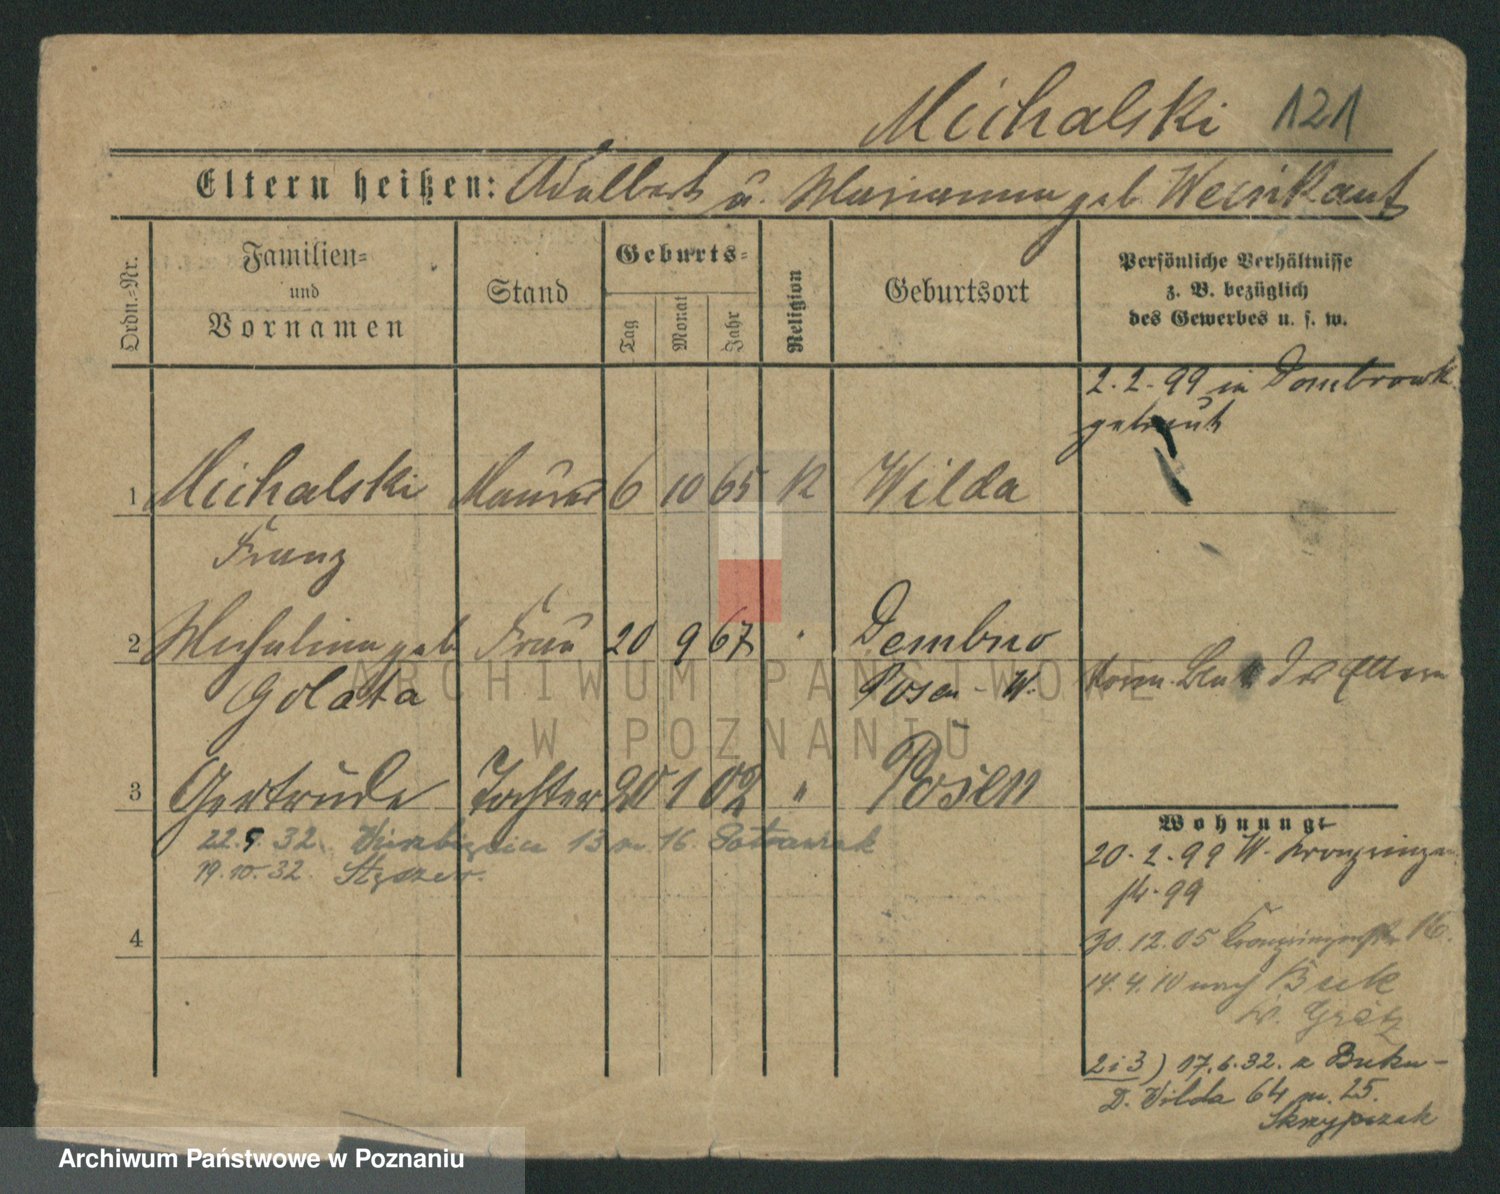 Michalski 121
Eltern heißen: Adalbert u. Marianna geb. Weinkauf
Ordn.-Nr.
Familien-
und
Vornamen
Stand
Geburts-
Tag
Monat
Jahr
Religion
Geburtsort
Persönliche Verhältnisse
z. B. bezüglich
des Gewerbes u. s. w.
2.2.99 in Dombrowk
getraut
1 Michalski Maurer 6 10 65 K Wilda
Franz
2 Michalina geb Frau 20 9 67 " Dembno
Golata Posen-W.
3 Gertrude Tochter 20 1 02 " Posen
22.9.32. 13 m. 16.
19.10.32.
4
Wohnung:
20.2.99 W. Kronprinzen
str. 99
30.12.05 Kronprinzenstr 16.
14.4.10 nach Buk
Kr. Grätz
2 i 3) 17.6.32. z Buku-
D. Wilda 64 m. 25.
Skrzypczak
ARCHIWUM PAŃSTWOWE
W POZNANIU
Archiwum Państwowe w Poznaniu